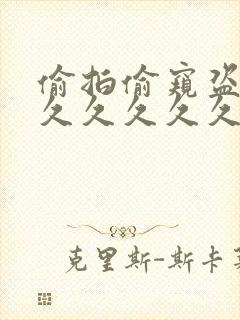 偷拍偷窥盗
久久久久久
克里斯-斯卡